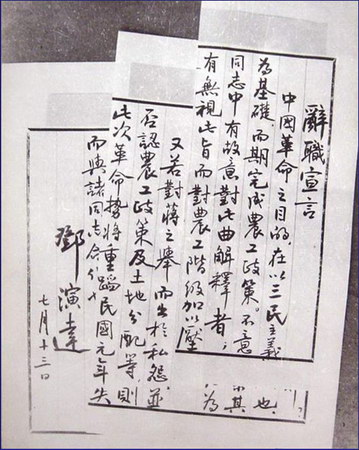 辭職宣言
中國革命之目的,在以三民主義
為基礎,而期完成農工政策。不意
同志中有故意對此曲解釋者,
有無視此旨而對農工階級加以壓
也
其
為
又若對蔣之舉,而出於私怨,並
否認農工政策及土地分配等,則
此次革命勢將重蹈民國元年失
而與諸同志
鄧演達
七月十三日